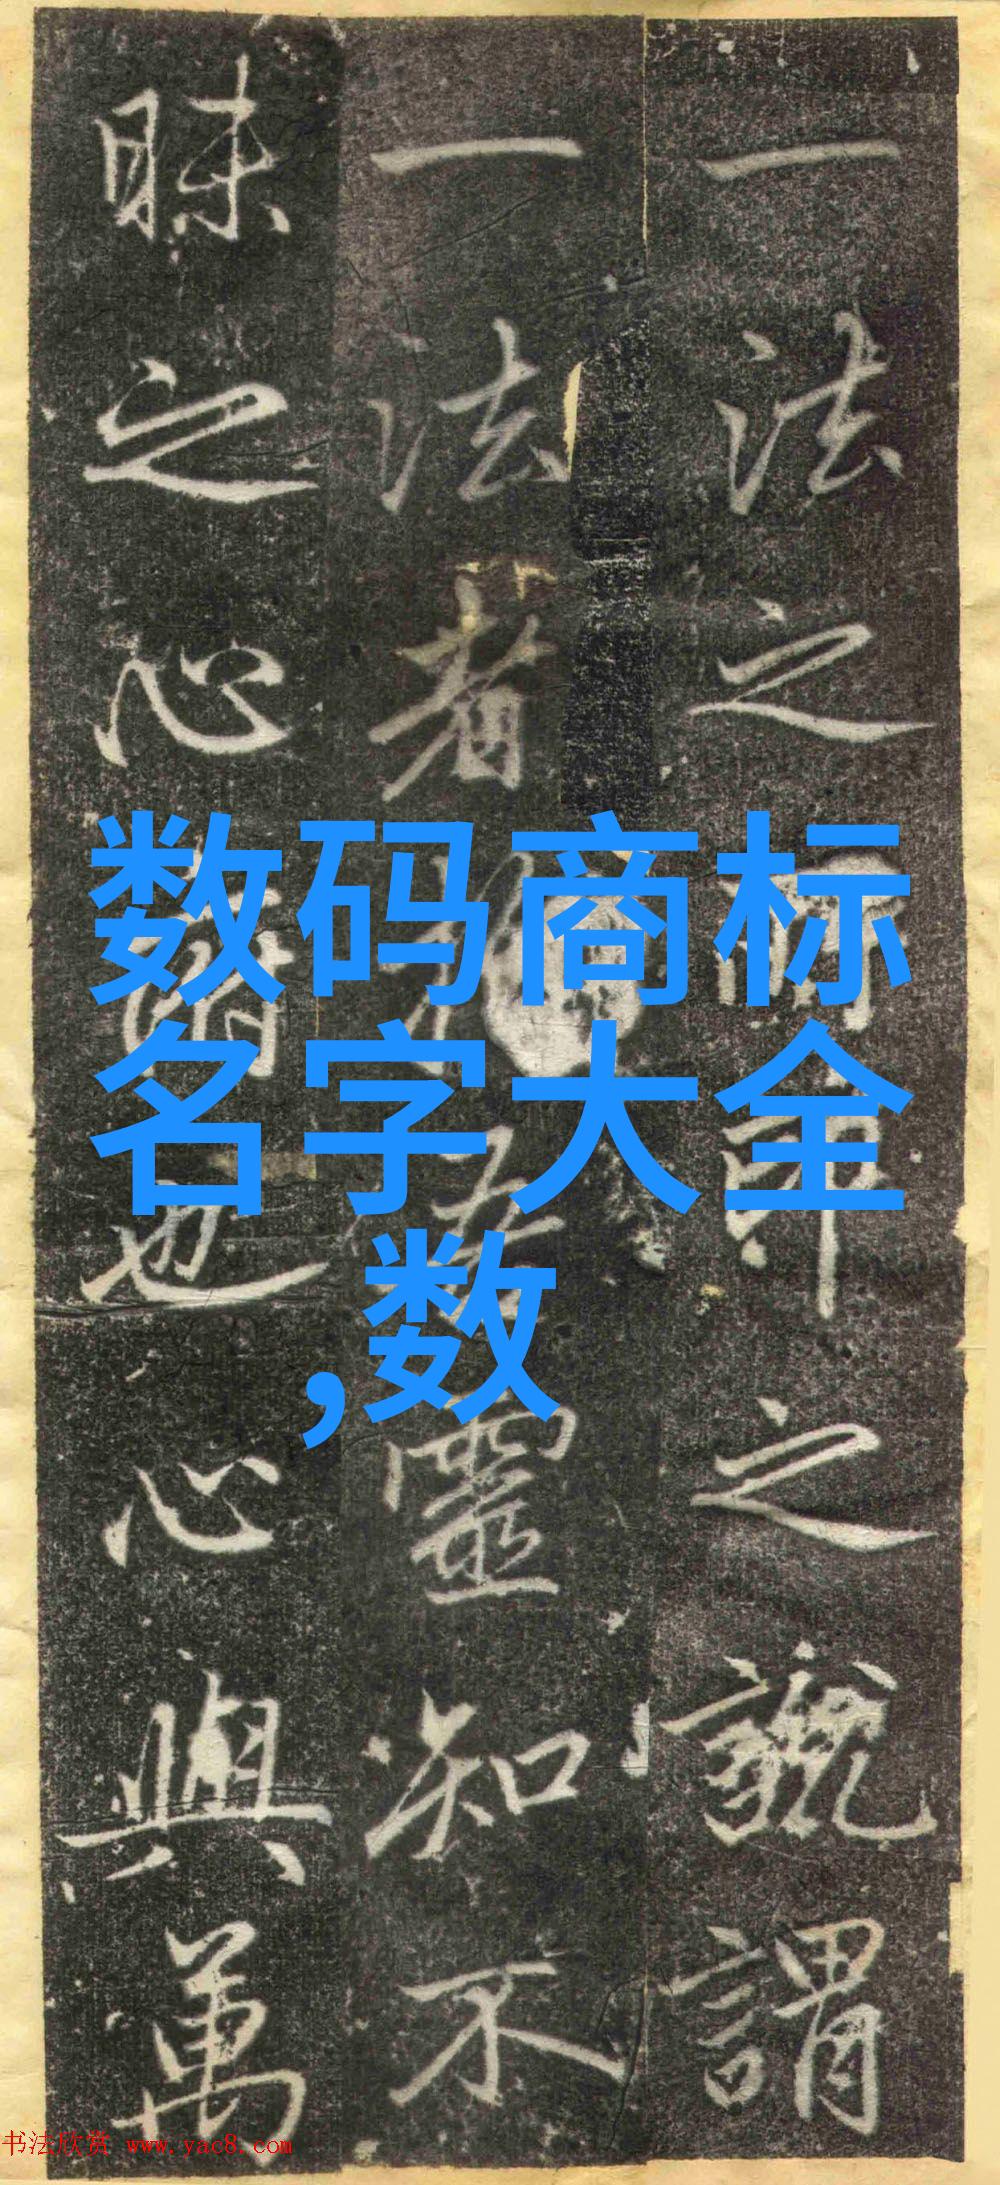 数码商标
名字大全
,数
一法之印之謂
一法者靈知不
眛之心也心與萬
书法欣赏 www.yac8.com